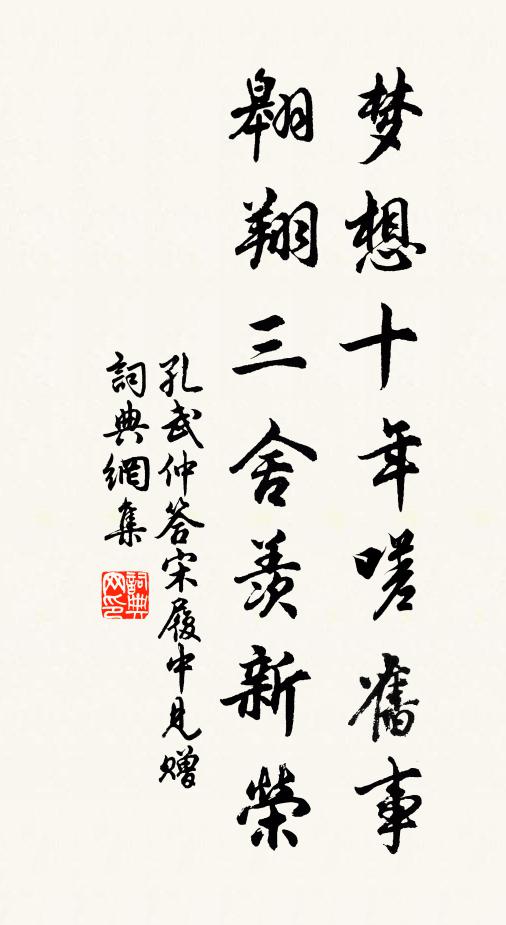 梦想十年嗟舊事
翱翔三舍羨新榮
孔武仲答宋履中見贈
詞典網集
詞典网印